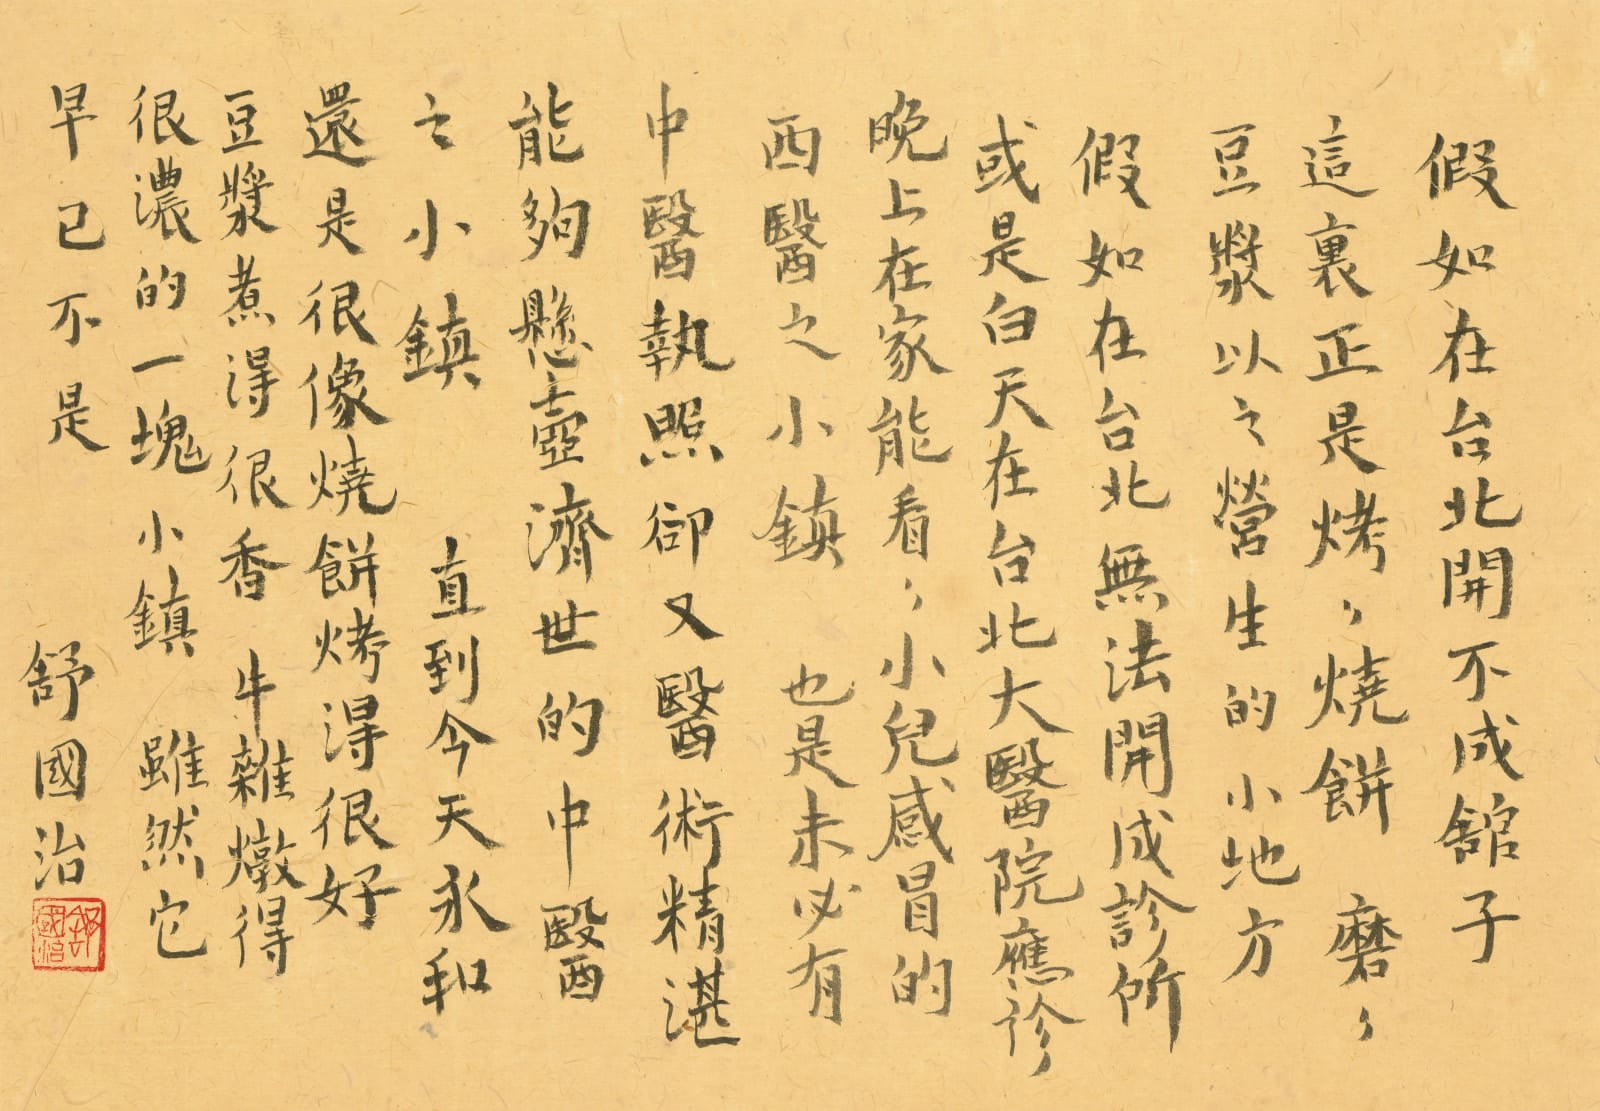 假如在台北開不成舘子
這裏正是烤〻燒餅 磨〻
豆漿以之營生的小地方
假如在台北無法開成診所
或是白天在台北大醫院應診
晚上在家能看〻小兒感冒的
西醫之小鎮 也是未必有
中醫執照卻又醫術精湛
能夠懸壺濟世的中醫
之小鎮 直到今天永和
還是很像燒餅烤得很好
豆漿煮得很香 牛雜燉得
很濃的一塊小鎮 雖然它
早已不是
舒國治
舒國治